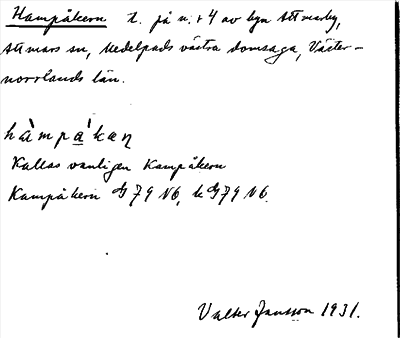 Hampåkern t. på n:r 4 av byn Attmarby,
Attmars sn, Medelpads västra domsaga, Väster-
norrlands län.
hàmpákaṇ
Kallas vanligen Kampåkern
Kampåkern 79 N6, 79 N6.
Valter Jansson 1931.